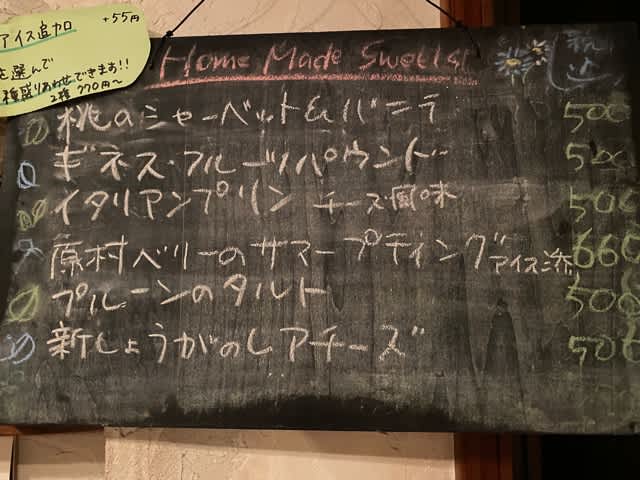 アイス追加 +55円
を選んで
種盛りあわせできます!!
2種 770円~
Home Made Sweets!
桃のシャーベット&バニラ 500
ギネス・フルーツパウンド 500
イタリアンプリン チーズ風味 500
原村ベリーのサマープディング アイス添 660
プルーンのタルト 500
新しょうがのレアチーズ 500